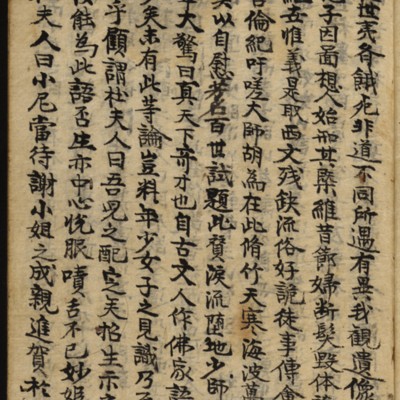 世夷齊餓死非道不同所遇有異我觀遺像
子因畵想人始知其槩維昔節婦斷髮毀体
女惟義是取西文殘缺流俗好詭徒事傅會
倫紀吁嗟大師胡為在此脩竹天寒海波萬
以自慰 名百世試題此贊淚流随地少師
大驚曰真天下奇才也自古文人作佛家語
矣未有此等論豈料年少女子之見識乃
乎顧謂杜夫人曰吾兒之配定矣招生示
為此語否生亦中心悅服嘖舌不已妙姬
夫人曰小尼當待謝小姐之成親進賀於